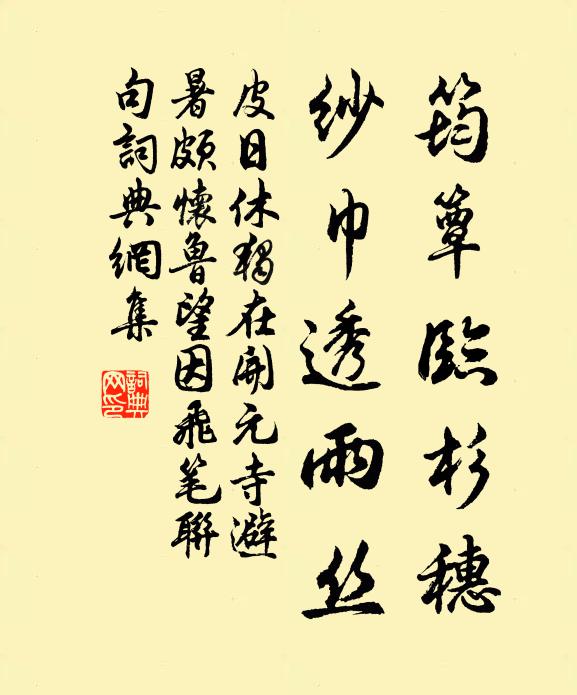 筠簟臨杉穗
紗巾透雨丝
皮日休獨在開元寺避
暑頗懷魯望因飛笔聯
句詞典網集
詞典
网印